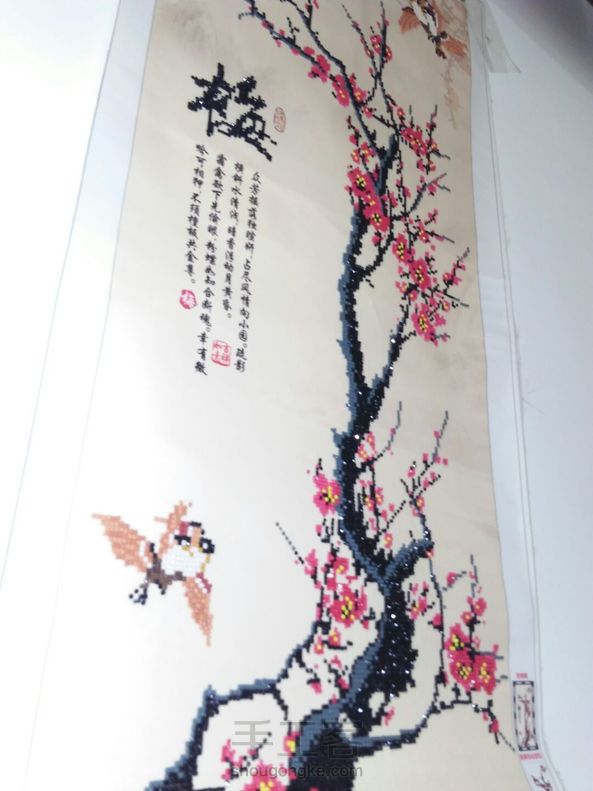 梅
众芳摇落独暄妍，占尽风情向小园。疏影
横斜水清浅，暗香浮动月黄昏。
霜禽欲下先偷眼，粉蝶如知合断魂。幸有微
吟可相狎，不须檀板共金尊。
梅
吉祥如意
手工客
shougongke.com